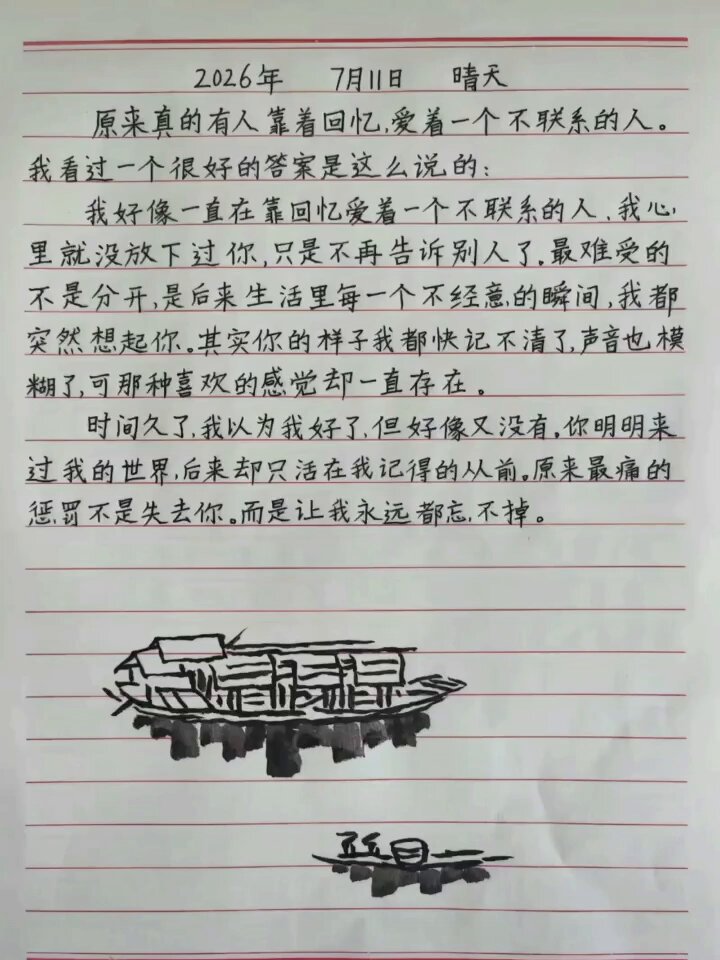 2026年 7月11日 晴天
原来真的有人靠着回忆,爱着一个不联系的人。
我看过一个很好的答案是这么说的:
我好像一直在靠回忆爱着一个不联系的人,我心
里就没放下过你,只是不再告诉别人了。最难受的
不是分开,是后来生活里每一个不经意的瞬间,我都
突然想起你。其实你的样子我都快记不清了,声音也模
糊了,可那种喜欢的感觉却一直存在。
时间久了,我以为我好了,但好像又没有。你明明来
过我的世界,后来却只活在我记得的从前。原来最痛的
惩罚不是失去你。而是让我永远都忘不掉。